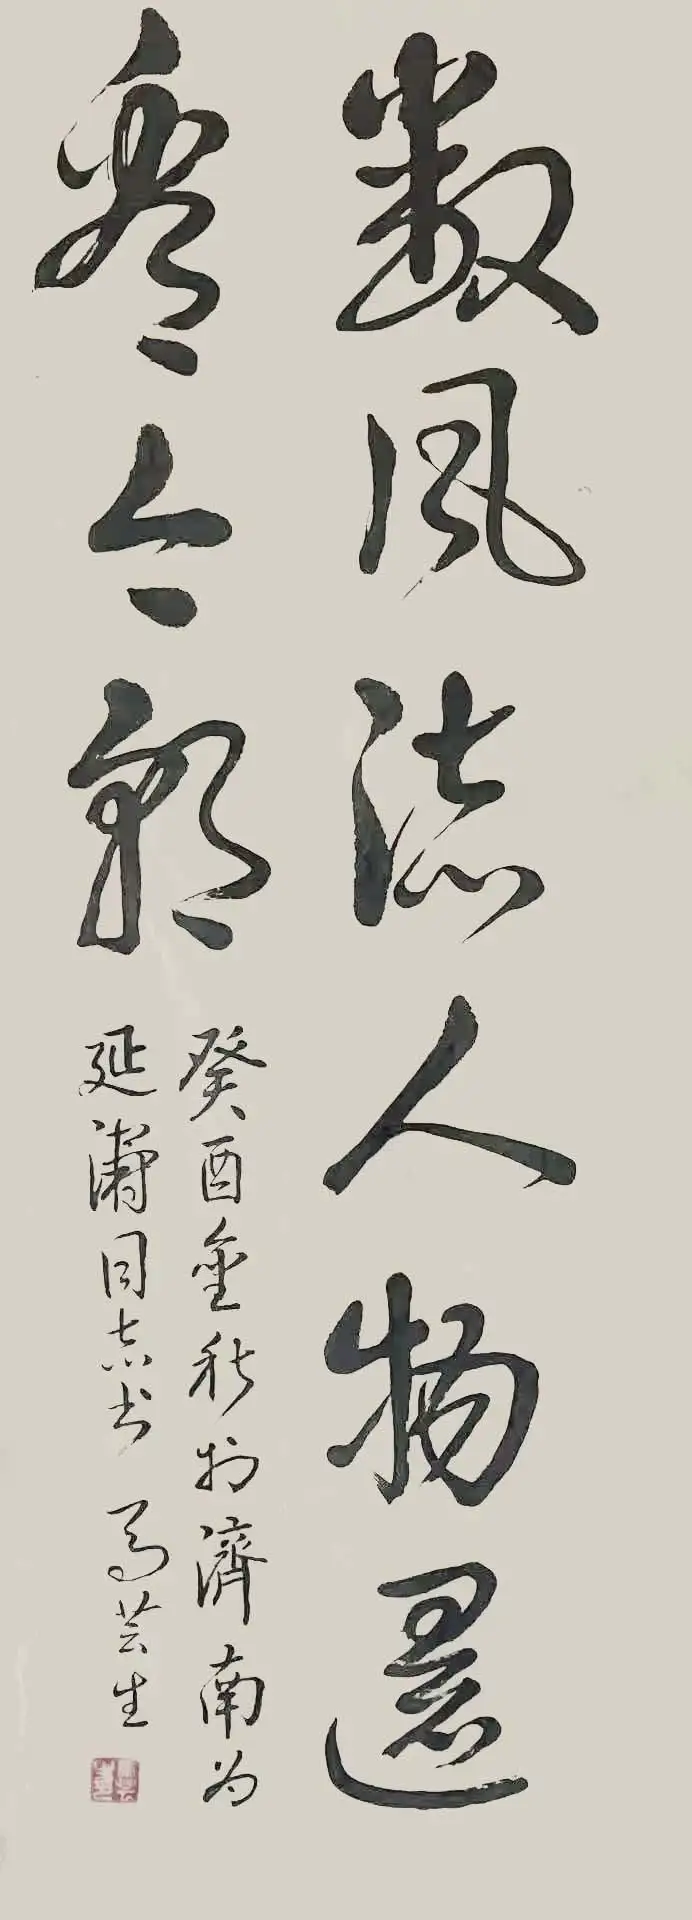 数风流人物还
看今朝
癸酉金秋于濟南为
延濤同志书 马芸生